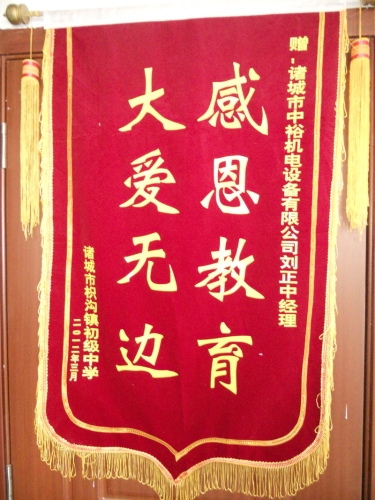 赠:诸城市中裕机电设备有限公司刘正中经理
感恩教育
大爱无边
诸城市枳沟镇初级中学
二〇一二年三月